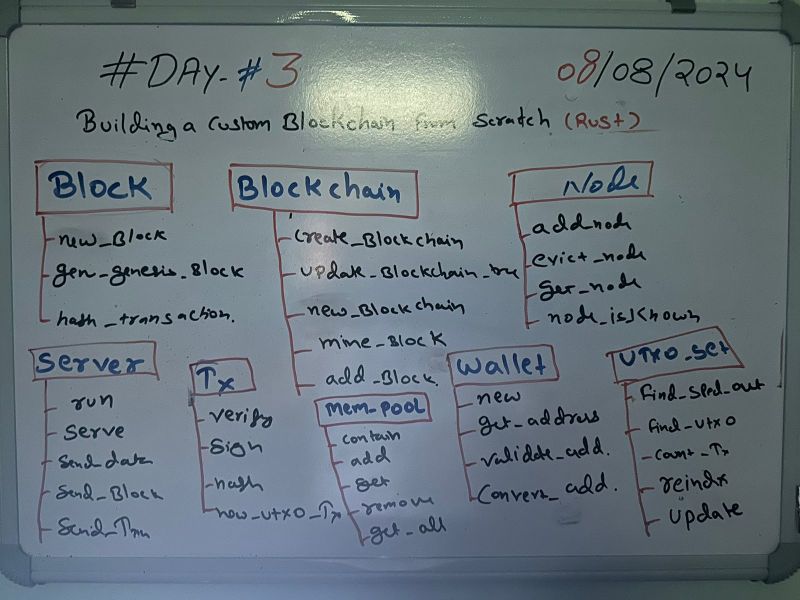 #DAY-#3
08/08/2024
Building a Custom Blockchain from Scratch (Rust)
Block
new_Block
gen_genesis_Block
hash_transaction.
Blockchain
Create_Blockchain
update_Blockchain_tree
new_Blockchain
mine_Block
add_Block.
Node
add node
evict_node
get_node
node_is_Known
Server
run
Serve
Send_data
Send_Block
Send_Txn
Tx
verify
Sign
hash
new_utxo_Tx
mem_pool
contain
add
get
remove
get_all
Wallet
new
get_address
validate_add.
Convert_add.
UTXO_set
find_spend_out
find_utxo
count_Tx
reindx
update